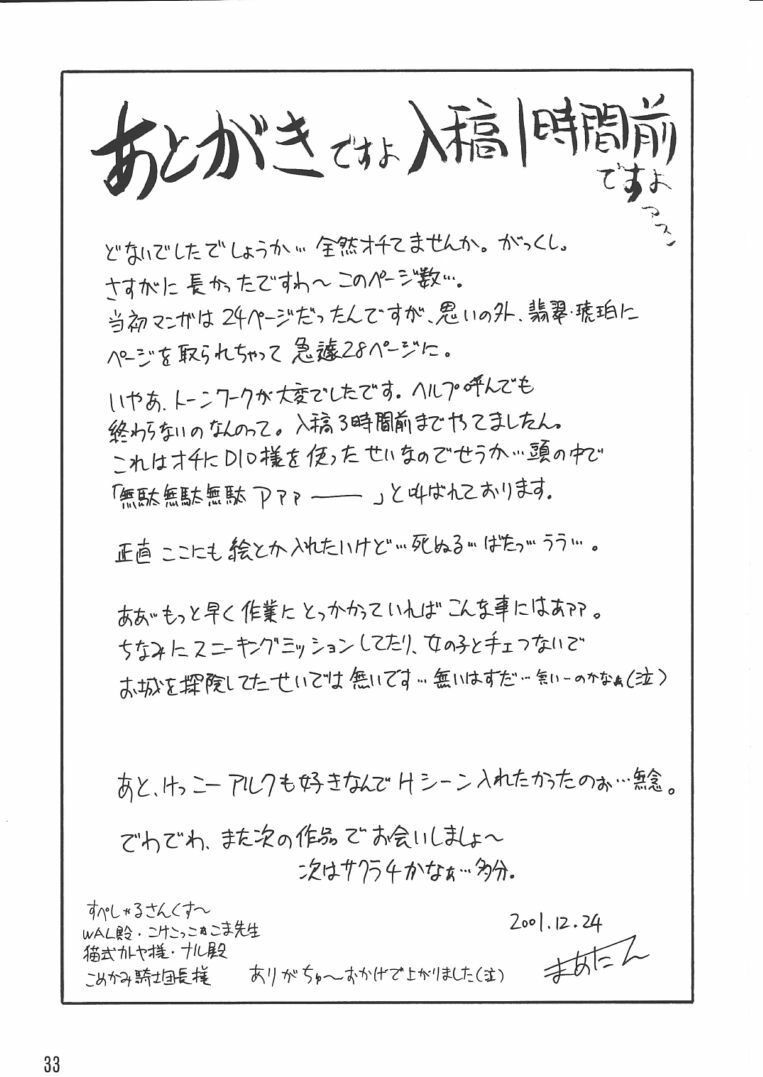 あとがきですよ 入稿1時間前ですよ
どないでしたでしょうか… 全然オチてませんか。がっくし。
さすがに 長かったですわ〜 このページ数…。
当初マンガは 24ページだったんですが、思いの外、翡翠・琥珀に
ページを取られちゃって 急遽28ページに。
いやあ、トーンワークが大変でしたです。ヘルプ呼んでも
終わらないのなんのって。入稿3時間前までやってましたん。
これはオチにDIO様を使ったせいなのでせうか…頭の中で
「無駄無駄無駄ァァァ―――」と叫ばれております。
正直 ここにも 絵とか入れたいけど…死ぬる…ばたっ…うう…。
ああ゛もっと早く作業に とっかかっていれば こんな事にはあァァ。
ちなみに スニーキングミッションしてたり、女の子と手ェつないで
お城を探険してたせいでは 無いです…無いはずだ…無いーのかなぁ(泣)
あと、けっこー アルクも好きなんで Hシーン入れたかったのぉ…無念。
でわでわ、また次の作品で お会いしましょ〜
次はサクラ4かなぁ…多分。
すぺしゃるさんくす〜
WAL殿・こけこっこぉこま先生
猫式カトヤ様・ナル殿
こめかみ騎士団長様 ありがちゅ〜おかげで上がりました(泣)
2001.12.24
まあたん
33